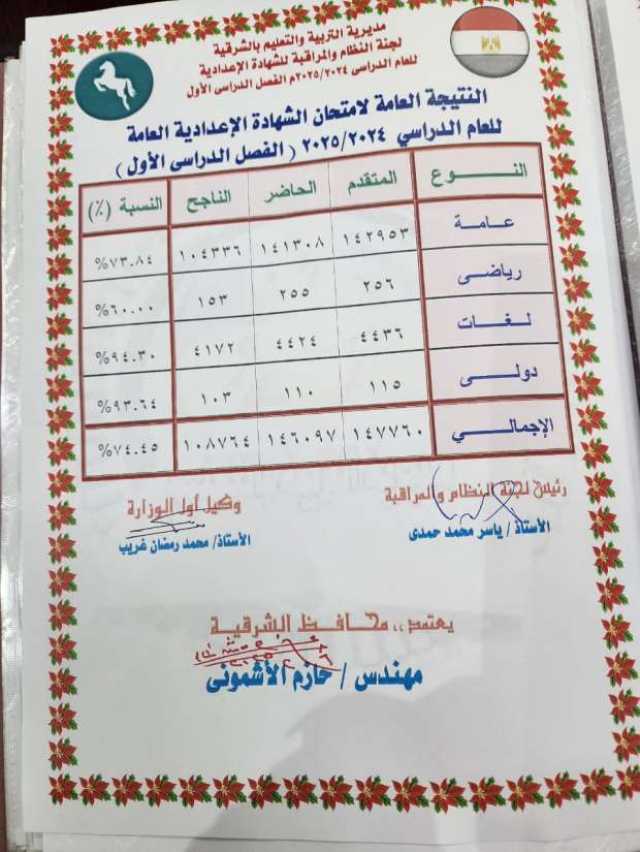 مديرية التربية والتعليم بالشرقية
لجنة النظام والمراقبة للشهادة الإعدادية
للعام الدراسى ٢٠٢٥/٢٠٢٤م الفصل الدراسى الأول
النتيجة العامة لامتحان الشهادة الإعدادية العامة
للعام الدراسي ٢٠٢٥/٢٠٢٤ ( الفصل الدراسى الأول )
النـــــوع المتقدم الحاضر الناجح النسبة (٪)
عـامـــة ١٤٢٩٥٣ ١٤١٣٠٨ ١٠٤٣٣٦ ٧٣.٨٤%
رياضـى ٢٥٦ ٢٥٥ ١٥٣ ٦٠.٠٠%
لـغـــات ٤٤٣٦ ٤٤٢٤ ٤١٧٢ ٩٤.٣٠%
دولـــى ١١٥ ١١٠ ١٠٣ ٩٣.٦٤%
الإجمالـــي ١٤٧٧٦٠ ١٤٦٠٩٧ ١٠٨٧٦٤ ٧٤.٤٥%
رئيس لجنة النظام والمراقبة
الأستاذ / ياسر محمد حمدى
وكيل أول الوزارة
الأستاذ/ محمد رمضان غريب
يعتمد،، محافظ الشرقية
مهندس / حازم الأشمونى